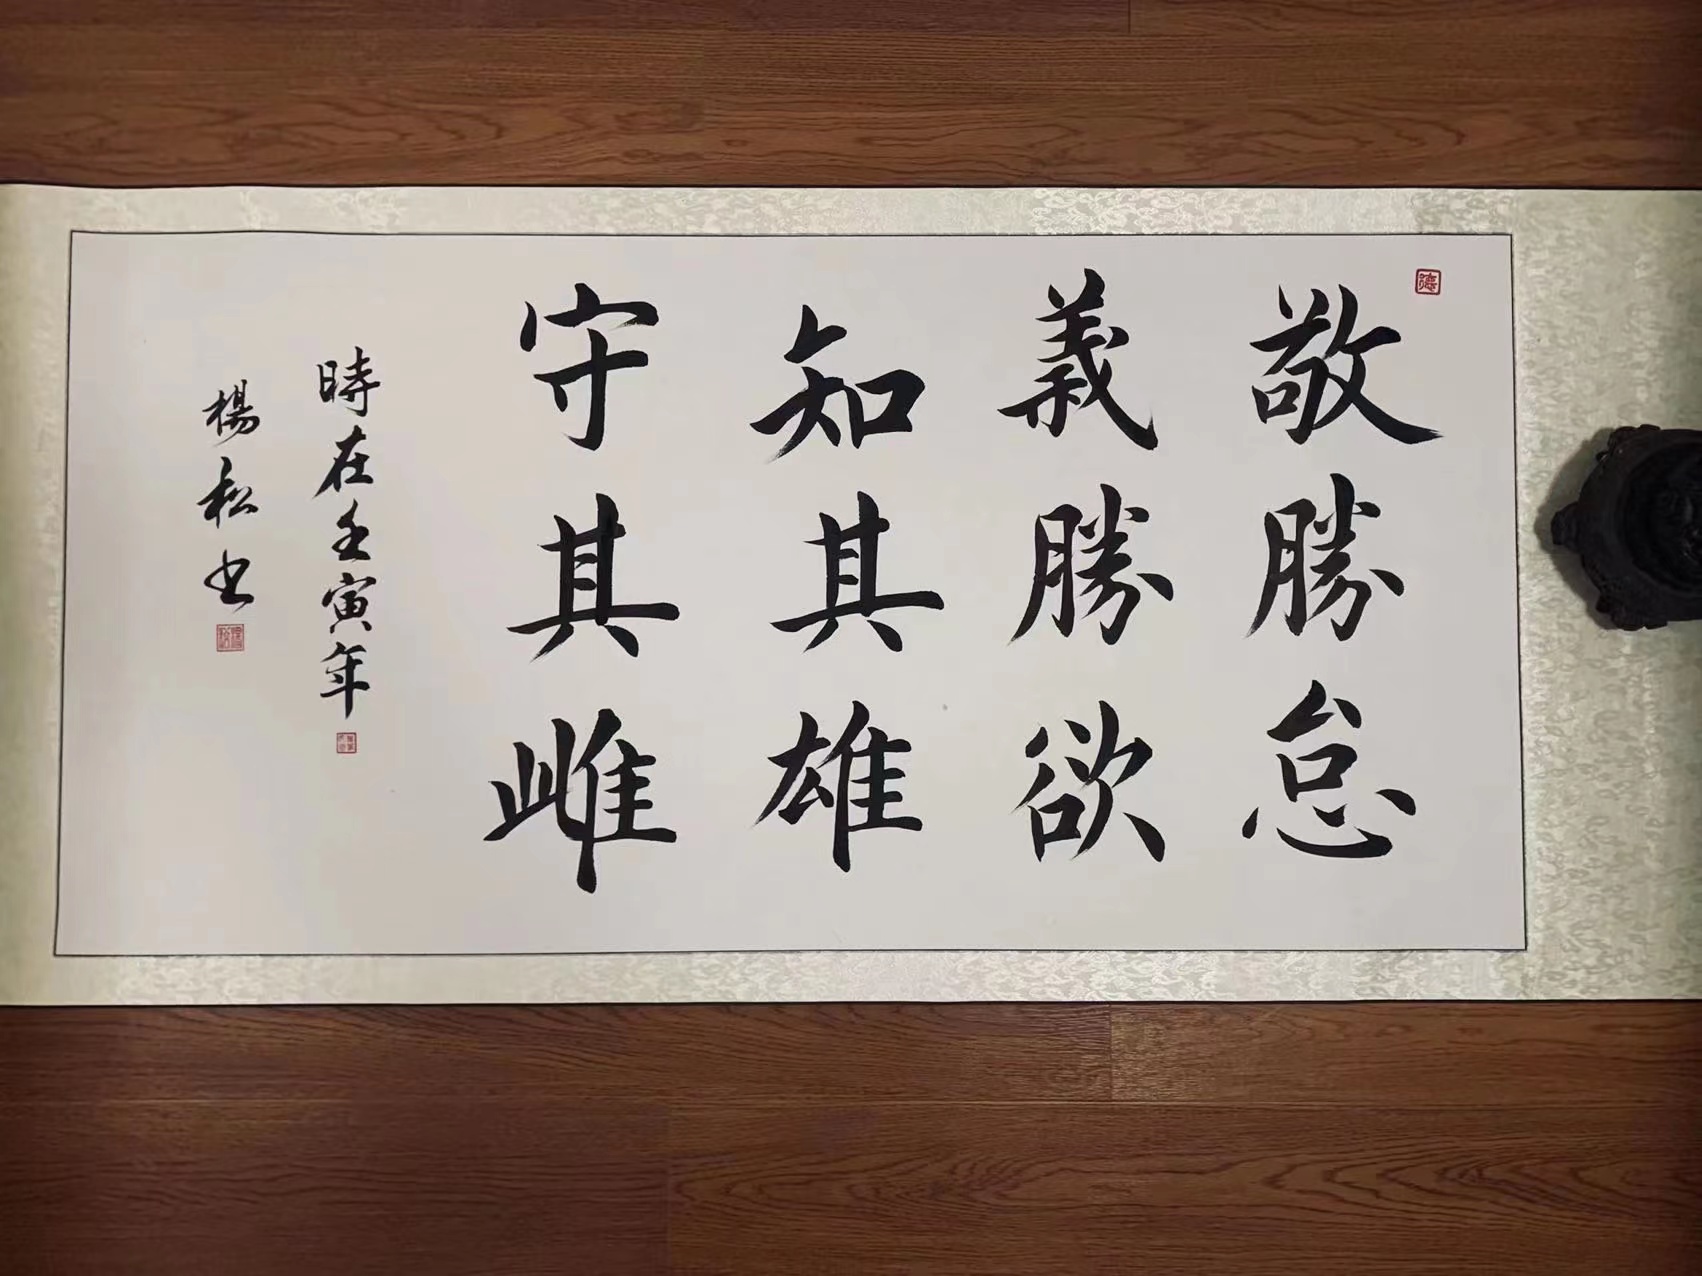 敬勝怠
義勝欲
知其雄
守其雌
時在壬寅年
楊松书